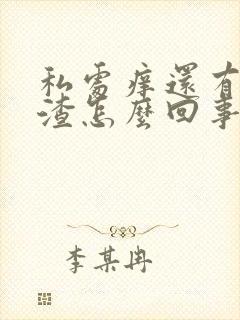 私處癢還有
渣怎麼回事
李某冉